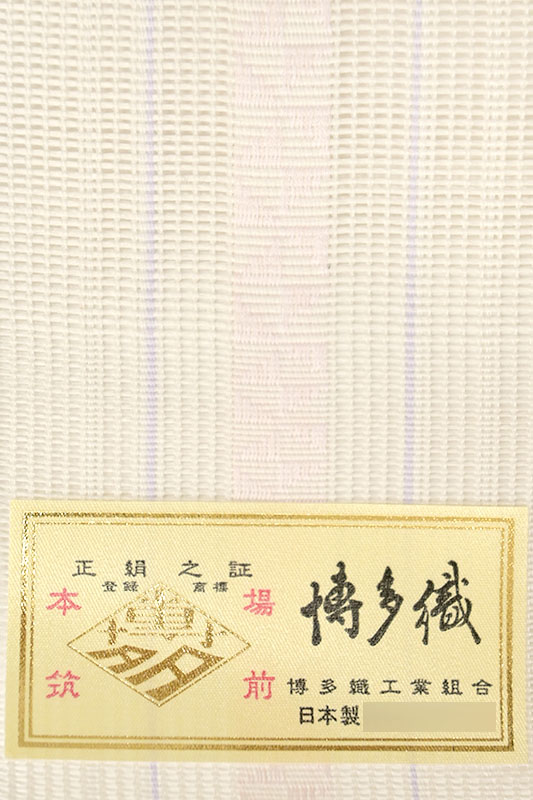 正絹之証
登録商標
本場
筑前
博多
博多織
博多織工業組合
日本製